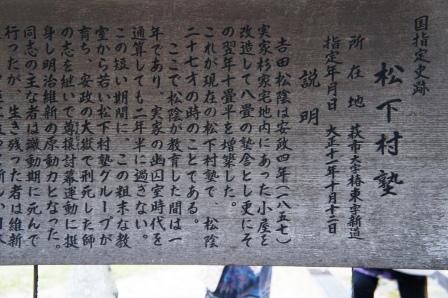 国指定史跡
松下村塾
所在地 萩市大字椿東字新道
指定年月日 大正十一年十月十二日
説明
吉田松陰は安政四年(一八五七)
実家杉家宅地内にあった小屋を
改造して八畳の塾舎とし更にそ
の翌年十畳半を増築した。
これが現在の松下村塾で、松陰
二十七才の時のことである。
ここで松陰が教育した間は一
年であり、実家の幽囚室時代を
通算しても二年半に過ぎない。
この短い期間に、この粗末な教
室から若い松下村塾グループが
育ち、安政の大獄で刑死した師
の志を継いで尊攘討幕運動に挺
身し明治維新の原動力となった。
同志の主な者は激動期に死んで
行ったが、生き残った者は維新